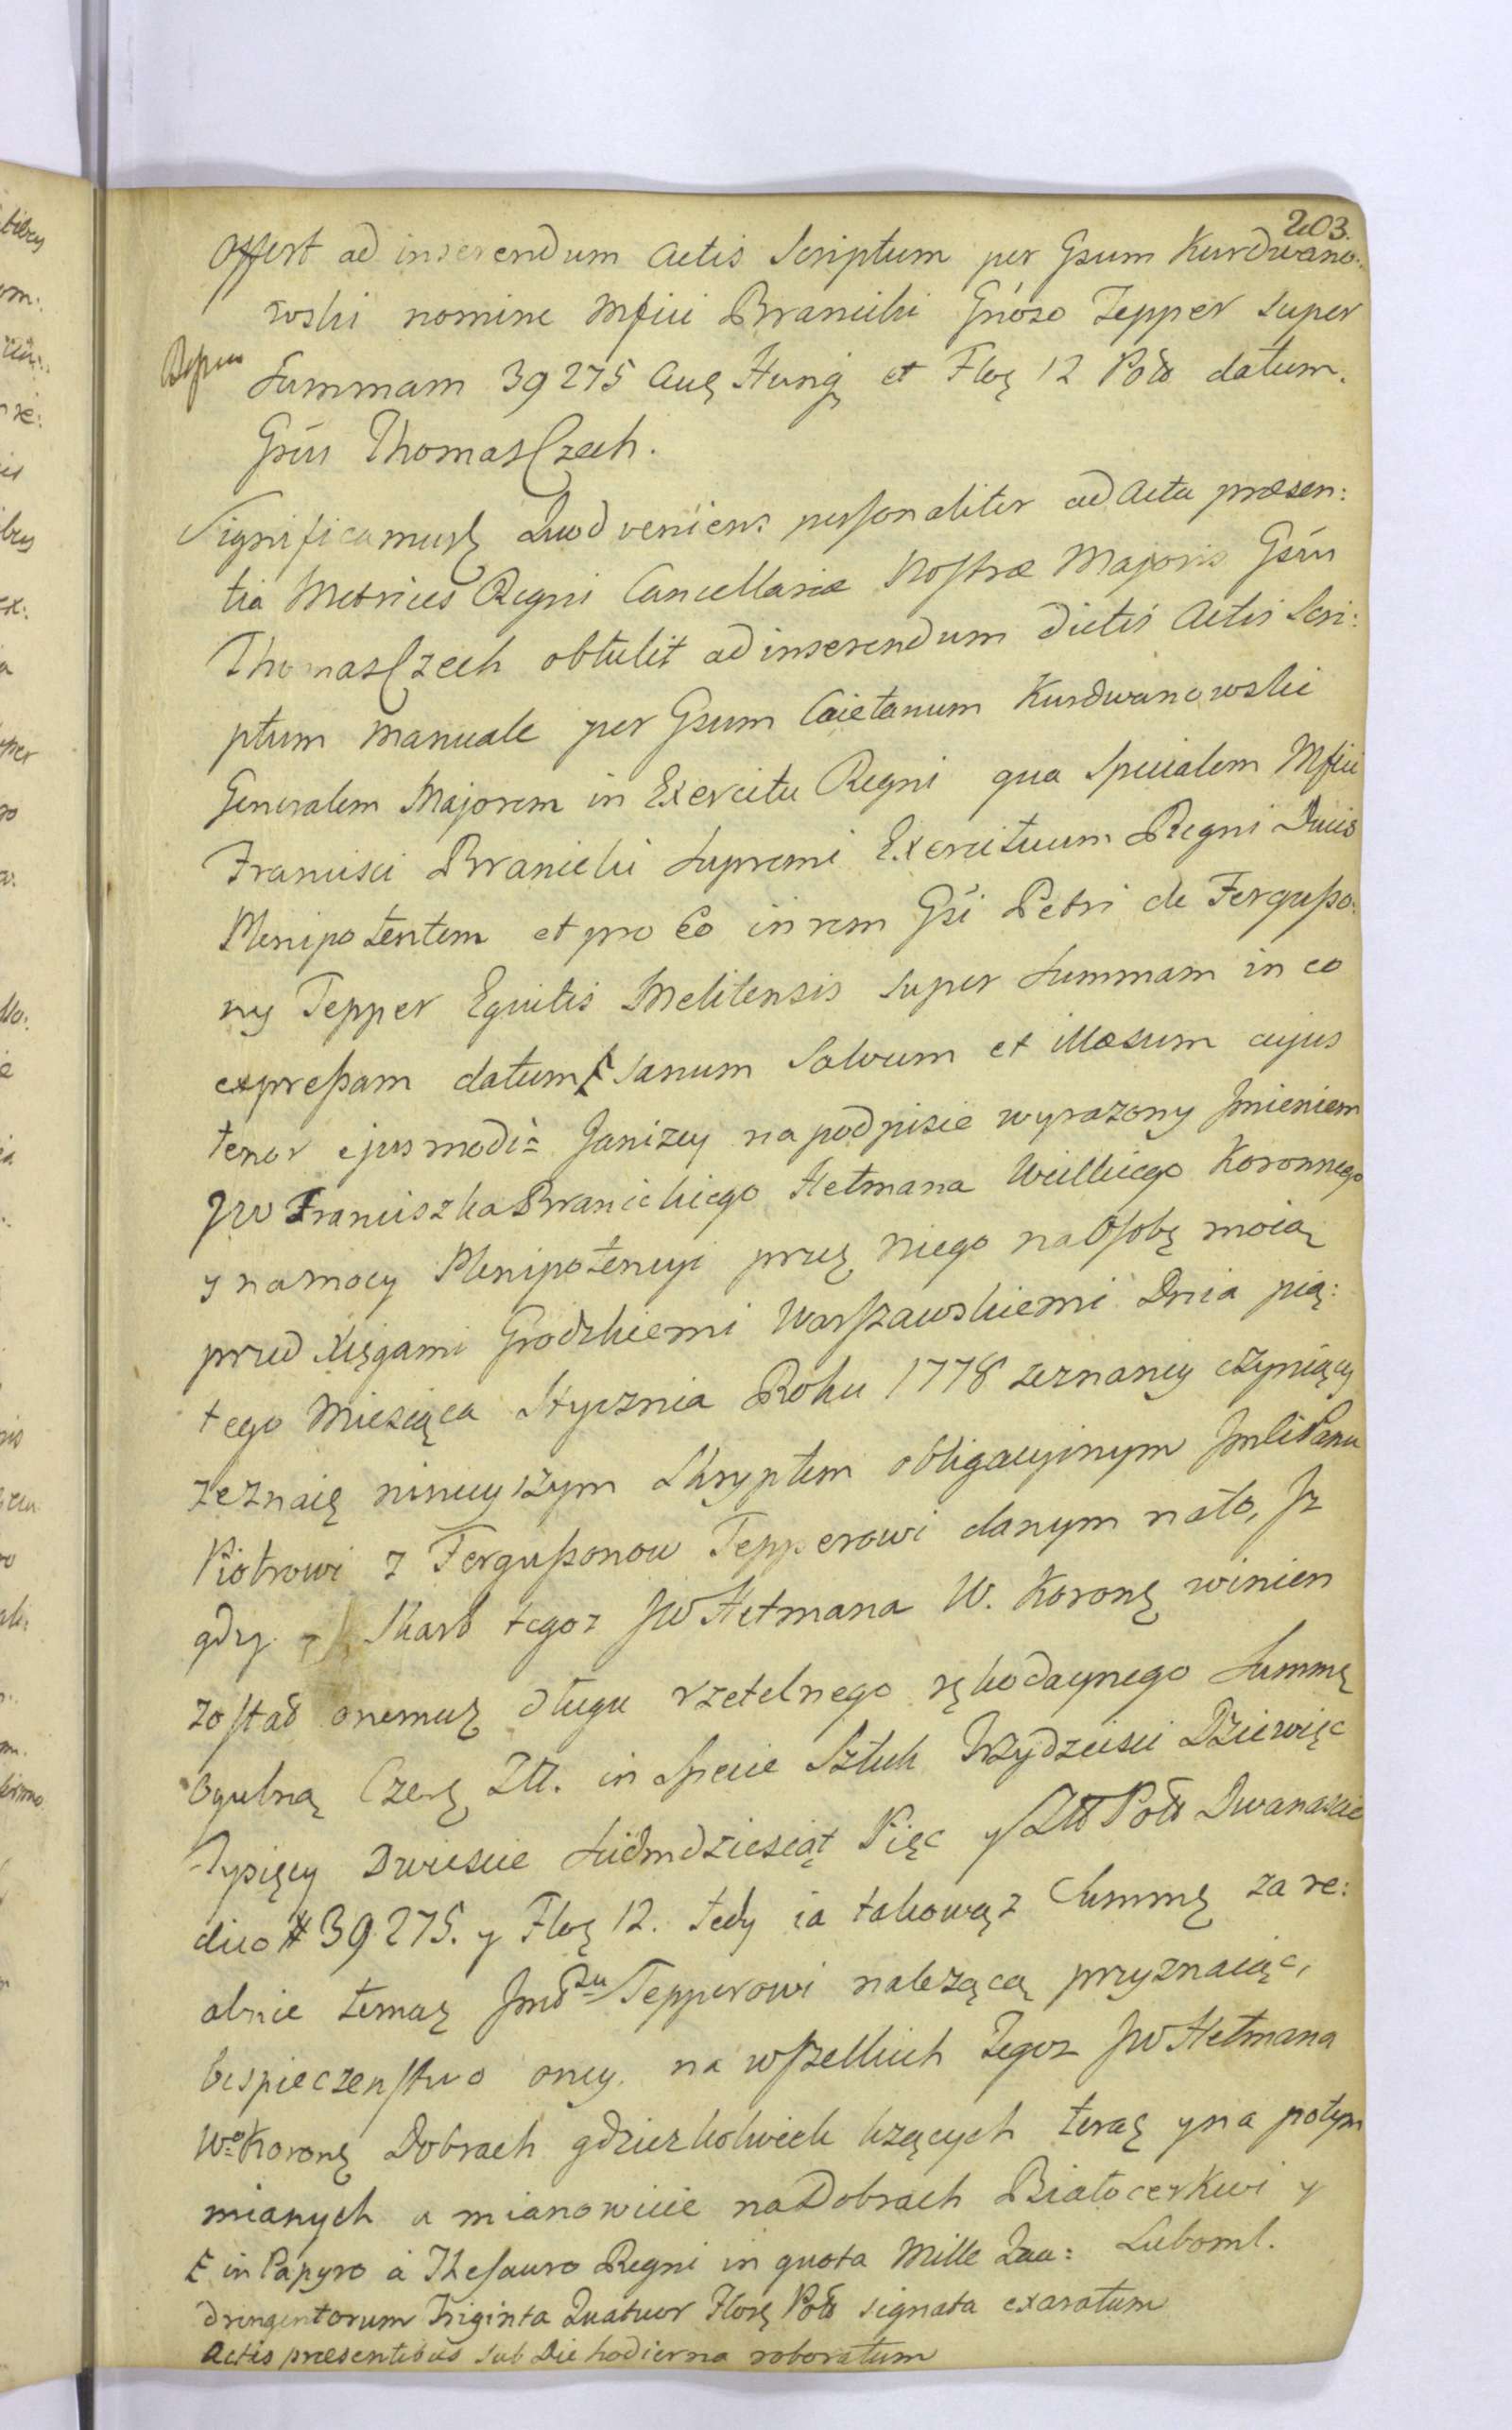 203.
Offert ad inserendum Actis Scriptum per Gsum Kurdwano:
wski nomine Mfici Branicki Gnoso Tepper super
Summam 39275 Aur Hung et Flor 12 Poll datum.
Gsus Thomas Czech.
Significamus Quod veniens personaliter ad Acta præsen:
tia Metrices Regni Cancellariæ Nostræ Majoris Gsus
Thomas Czech obtulit ad inserendum dictis Actis Scri:
ptum manuale per Gsum Caietanum Kurdwanowski
Generalem Majorem in Exercitu Regni qua Specialem Mfici
Francisci Branicki Supremi Exercituum Regni Ducis
Plenipotentem et pro Eo in rem Gsi Petri de Ferguſso:
ny Tepper Equitis Melitensis super Summam in eo
expreſsam datum E Sanum Salvum et illæsum cujus
tenor ejusmodi: Ja niżey na podpisie wyrazony Jmieniem
JW Franciszka Branickiego Hetmana Wielkiego Koronnego
y na mocy Plenipotencyi przez niego na Osobę moią
przed Xięgami Grodzkiemi Warszawskiemi Dnia pią:
tego Miesiąca Stycznia Roku 1778 zeznaney czyniący
zeznaię ninieyszym Skryptem obligacyjnym JmCi Panu
Piotrowi z Ferguſsonow Tepperowi danym na to, Jz
gdy Skarb tegoz JW Hetmana W. Koronę winien
został onemuz długu rzetelnego rękodaynego Summę
ogulną Czerę Złł. in Specie Sztuk Trzydzieści Dziewięc
Tysięcy Dwiescie Siedmdziesiąt Pięc y Złł Poll Dwanascie
dico # 39275. y Flor 12. tedy ia takowąz Summę za re:
alnie temuz Jmć Panu Tepperowi nalezącą przyznaiąc,
bespieczenstwo oney na wszelkich Tegoz JW Hetmana
Wo Koronę Dobrach gdziezkolwiek lezących teraz y na potym
mianych a mianowicie na Dobrach Białocerkwi y
Luboml.
E in Papyro à Thesauro Regni in quota Mille Qua:
dringentorum Triginta Quatuor Flor Poll signata exaratum
Actis præsentibus sub Die hodierna roboratum